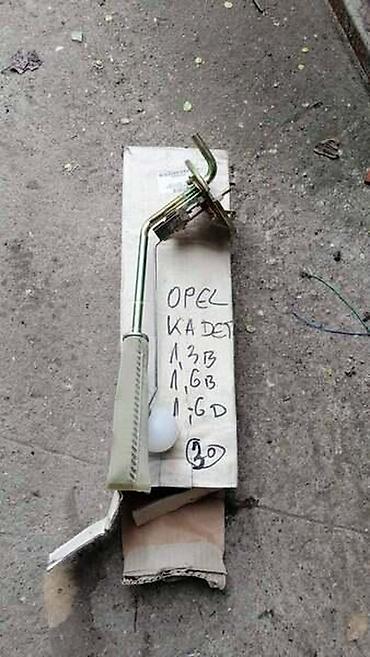 OPEL
KADET
1,3B
1,6B
1,6D
30